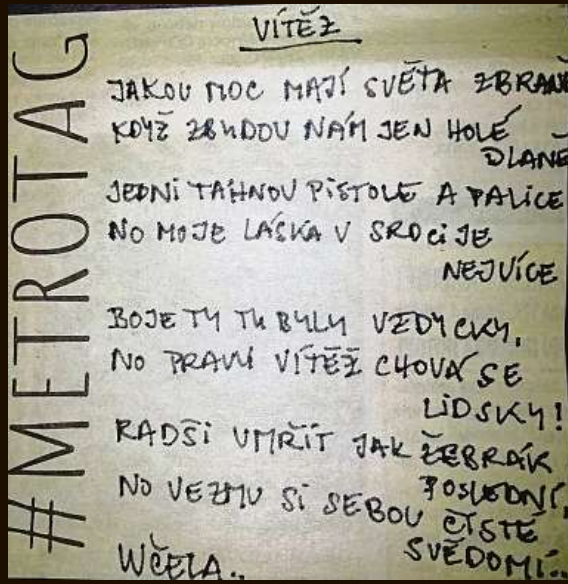 #METROTAG
VÍTĚZ
JAKOU MOC MAJÍ SVĚTA ZBRANĚ
KDYŽ ZBUDOU NÁM JEN HOLÉ
DLANĚ
JEDNI TÁHNOU PISTOLE A PALICE
NO MOJE LÁSKA V SRDCI JE
NEJVÍCE
BOJE TY TU BYLY VŽDYCKY,
NO PRAVÝ VÍTĚZ CHOVÁ SE
LIDSKY!
RADŠI UMŘÍT JAK ŽEBRÁK
POSLEDNÍ,
NO VEZMU SI SEBOU ČISTÉ
SVĚDOMÍ..
WČELA..